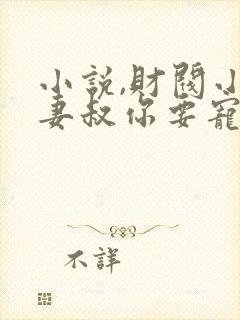 小説,財閥小
妻叔你要寵
不詳